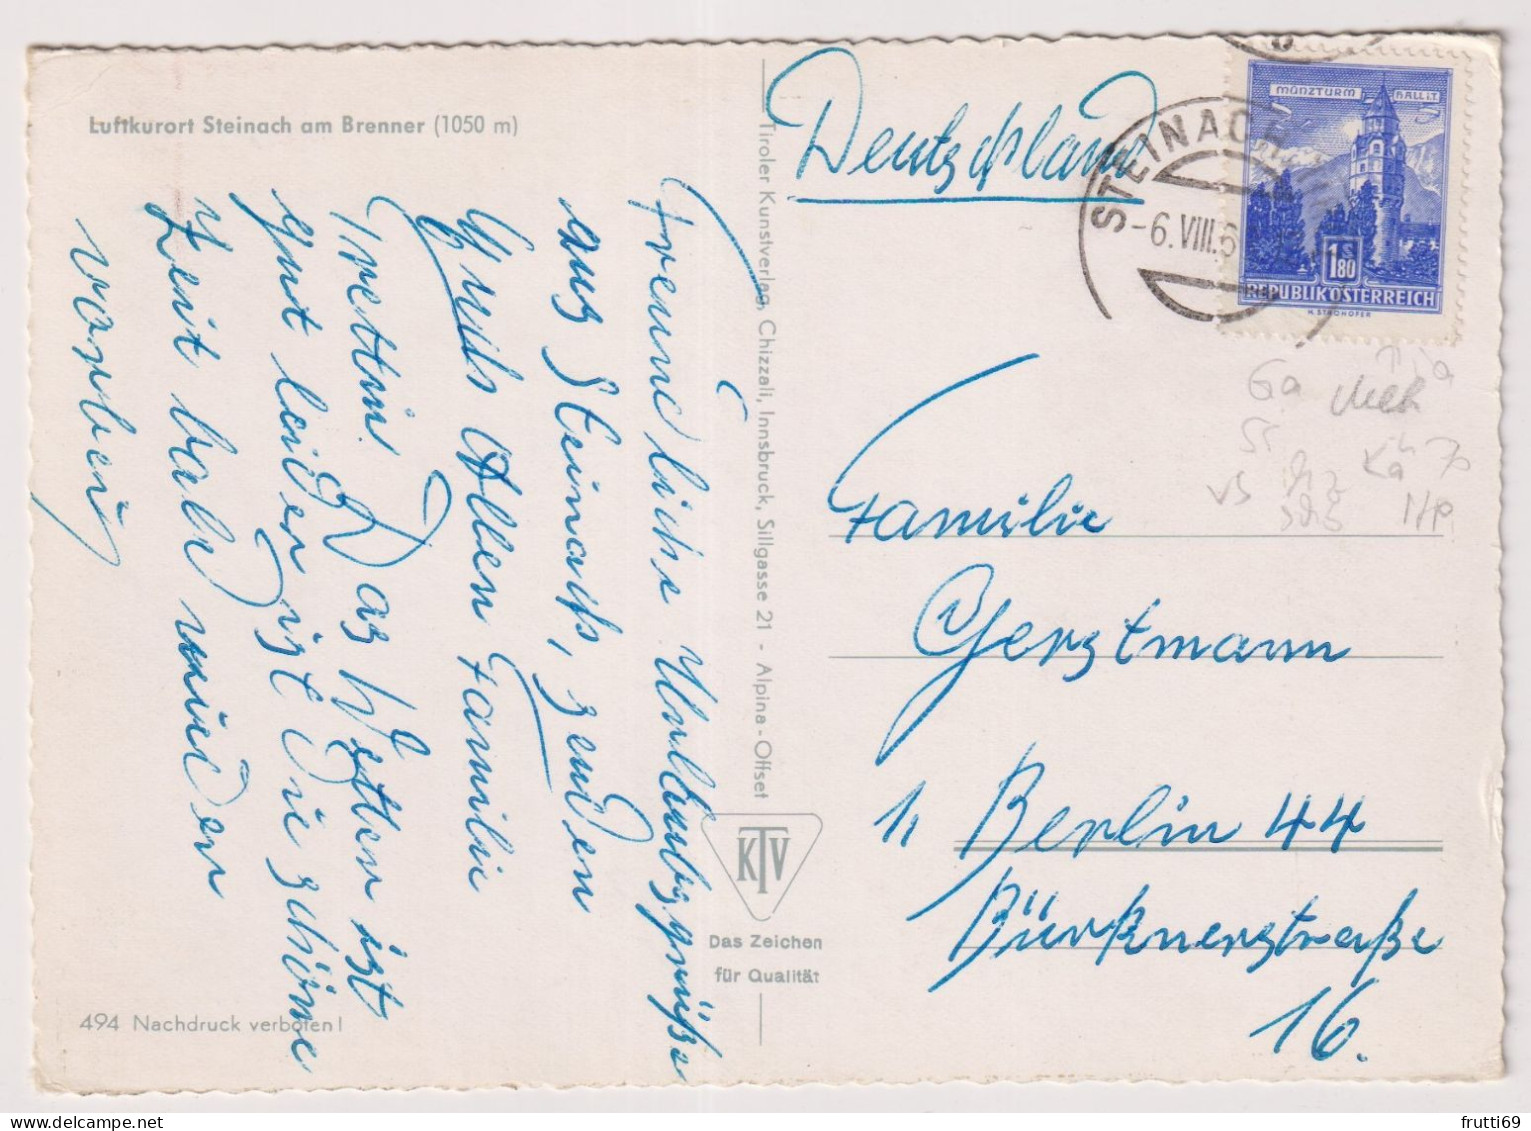 Luftkurort Steinach am Brenner (1050 m)
Freundliche Urlaubsgrüße
aus Steinach, senden
Gruß Allen Familie
Trettin Das Wetter ist
gut leider ist die schöne
Zeit bald wieder
vorbei
494 Nachdruck verboten!
Tiroler Kunstverlag Chizzali, Innsbruck, Sillgasse 21 - Alpina-Offset
KTV
Das Zeichen
für Qualität
Deutschland
STEINACH
-6.VIII.6
MÜNZTURM HALL i.T.
1S
80
REPUBLIK ÖSTERREICH
H. STROHOFER
Familie
Gerstmann
1, Berlin 44
Bürknerstraße
16.
frutti69